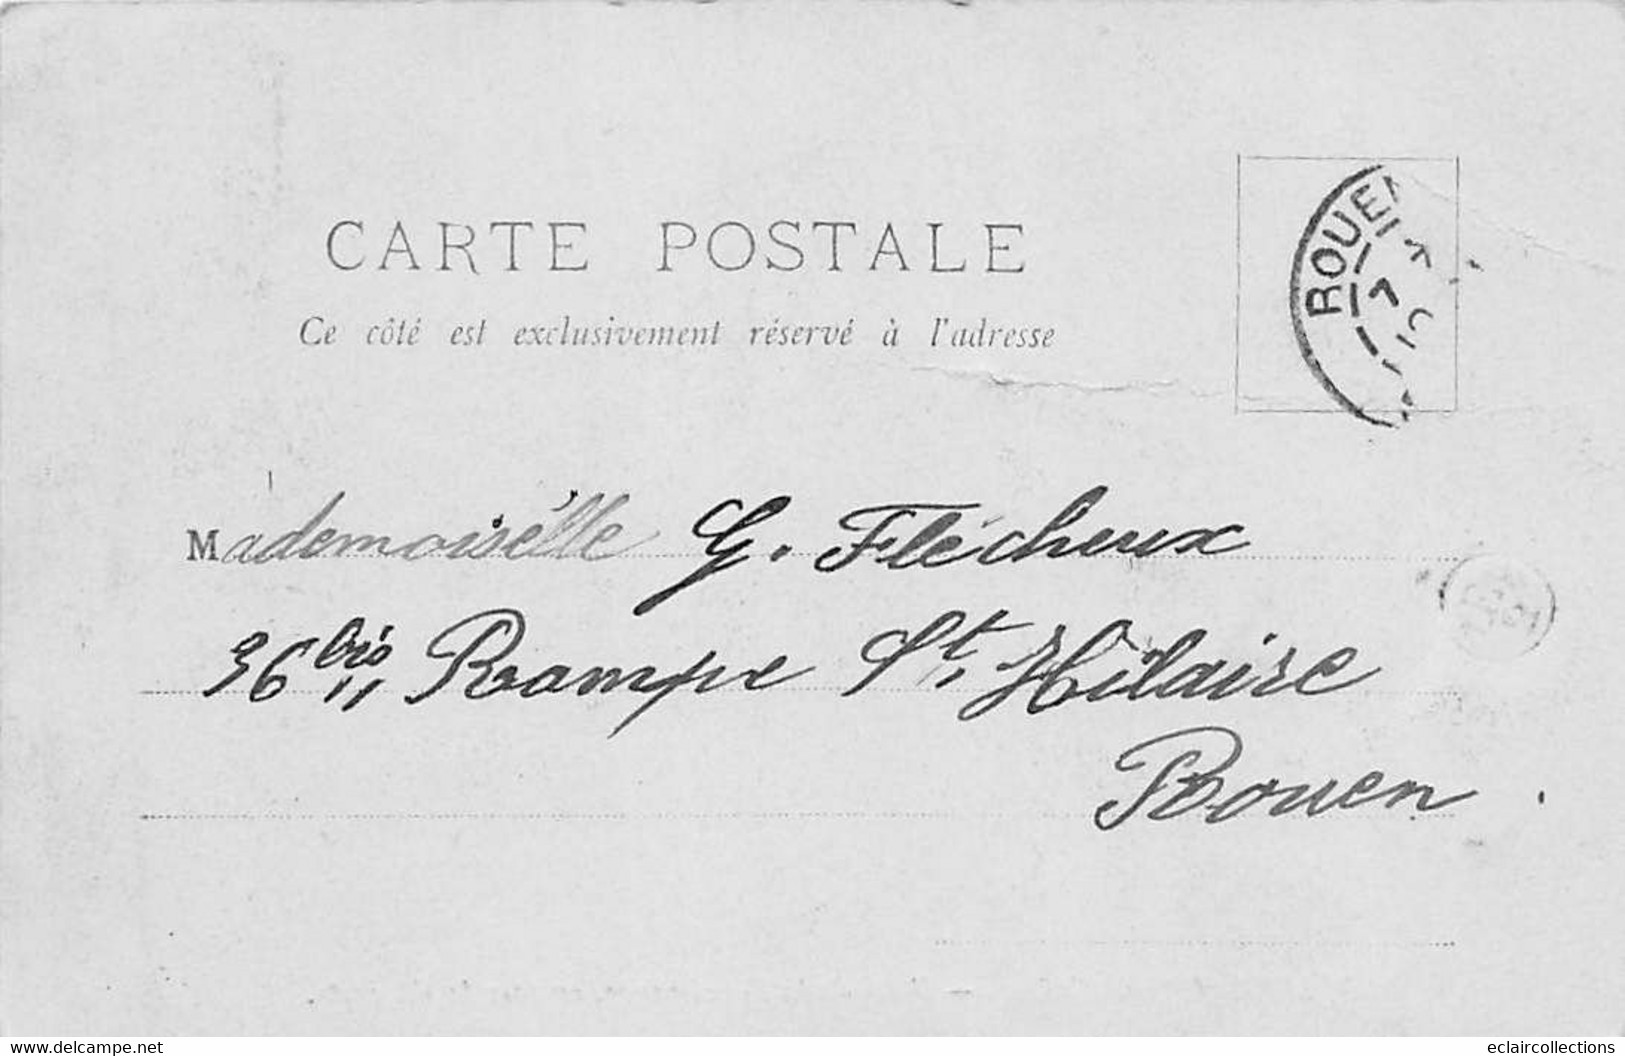 CARTE POSTALE
Ce côté est exclusivement réservé à l'adresse
ROUEN
Mademoiselle G. Flécheux
36 bis, Rampe St. Hilaire
Rouen.
www.delcampe.net
eclaircollections